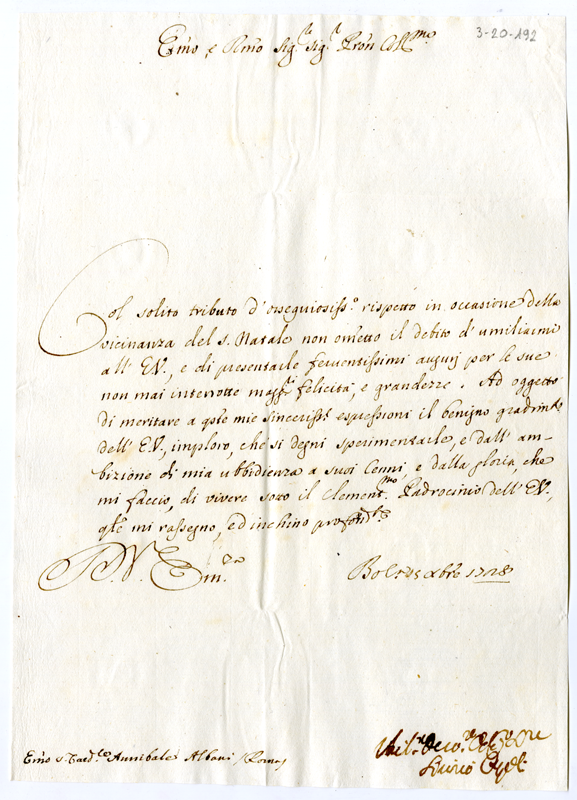 3-20-192
Emo, e Rmo Sig.re Sig.r Pron Collmo
Col solito tributo d'ossequiosiss.o rispetto in occasione della
vicinanza del S. Natale non ometto il debito d'umiliarmi
all' E.V., e di presentarle ferventissimi augurj per le sue
non mai interrotte magg.ri felicità, e grandezze. Ad oggetto
di meritare a q.ste mie sinceriss.e espressioni il benigno gradim.to
dell' E.V., imploro, che si degni sperimentarle, e dall' am-
bizione di mia ubbidienza a suoi Cenni, e dalla gloria, che
mi faccio, di vivere sotto il Clement.mo Padrocinio dell' E.V.,
q.le mi rassegno, ed inchino profond.te
D. V. Em.za
Bol. Xbre 1728
Emo S. Card.le Annibale Albani (Roma)